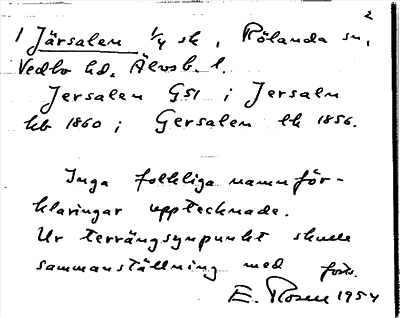 2
1 Järsalen 1/4 sk, Rölanda sn,
Vedbo hd. Älvsb. l.
Jersalen GSI i Jersaln
kb 1860 i Gersalen lk 1856.
Inga folkliga namnför-
klaringar upptecknade.
Ur terrängsynpunkt skulle
sammanställning med
E. Rosen 1954